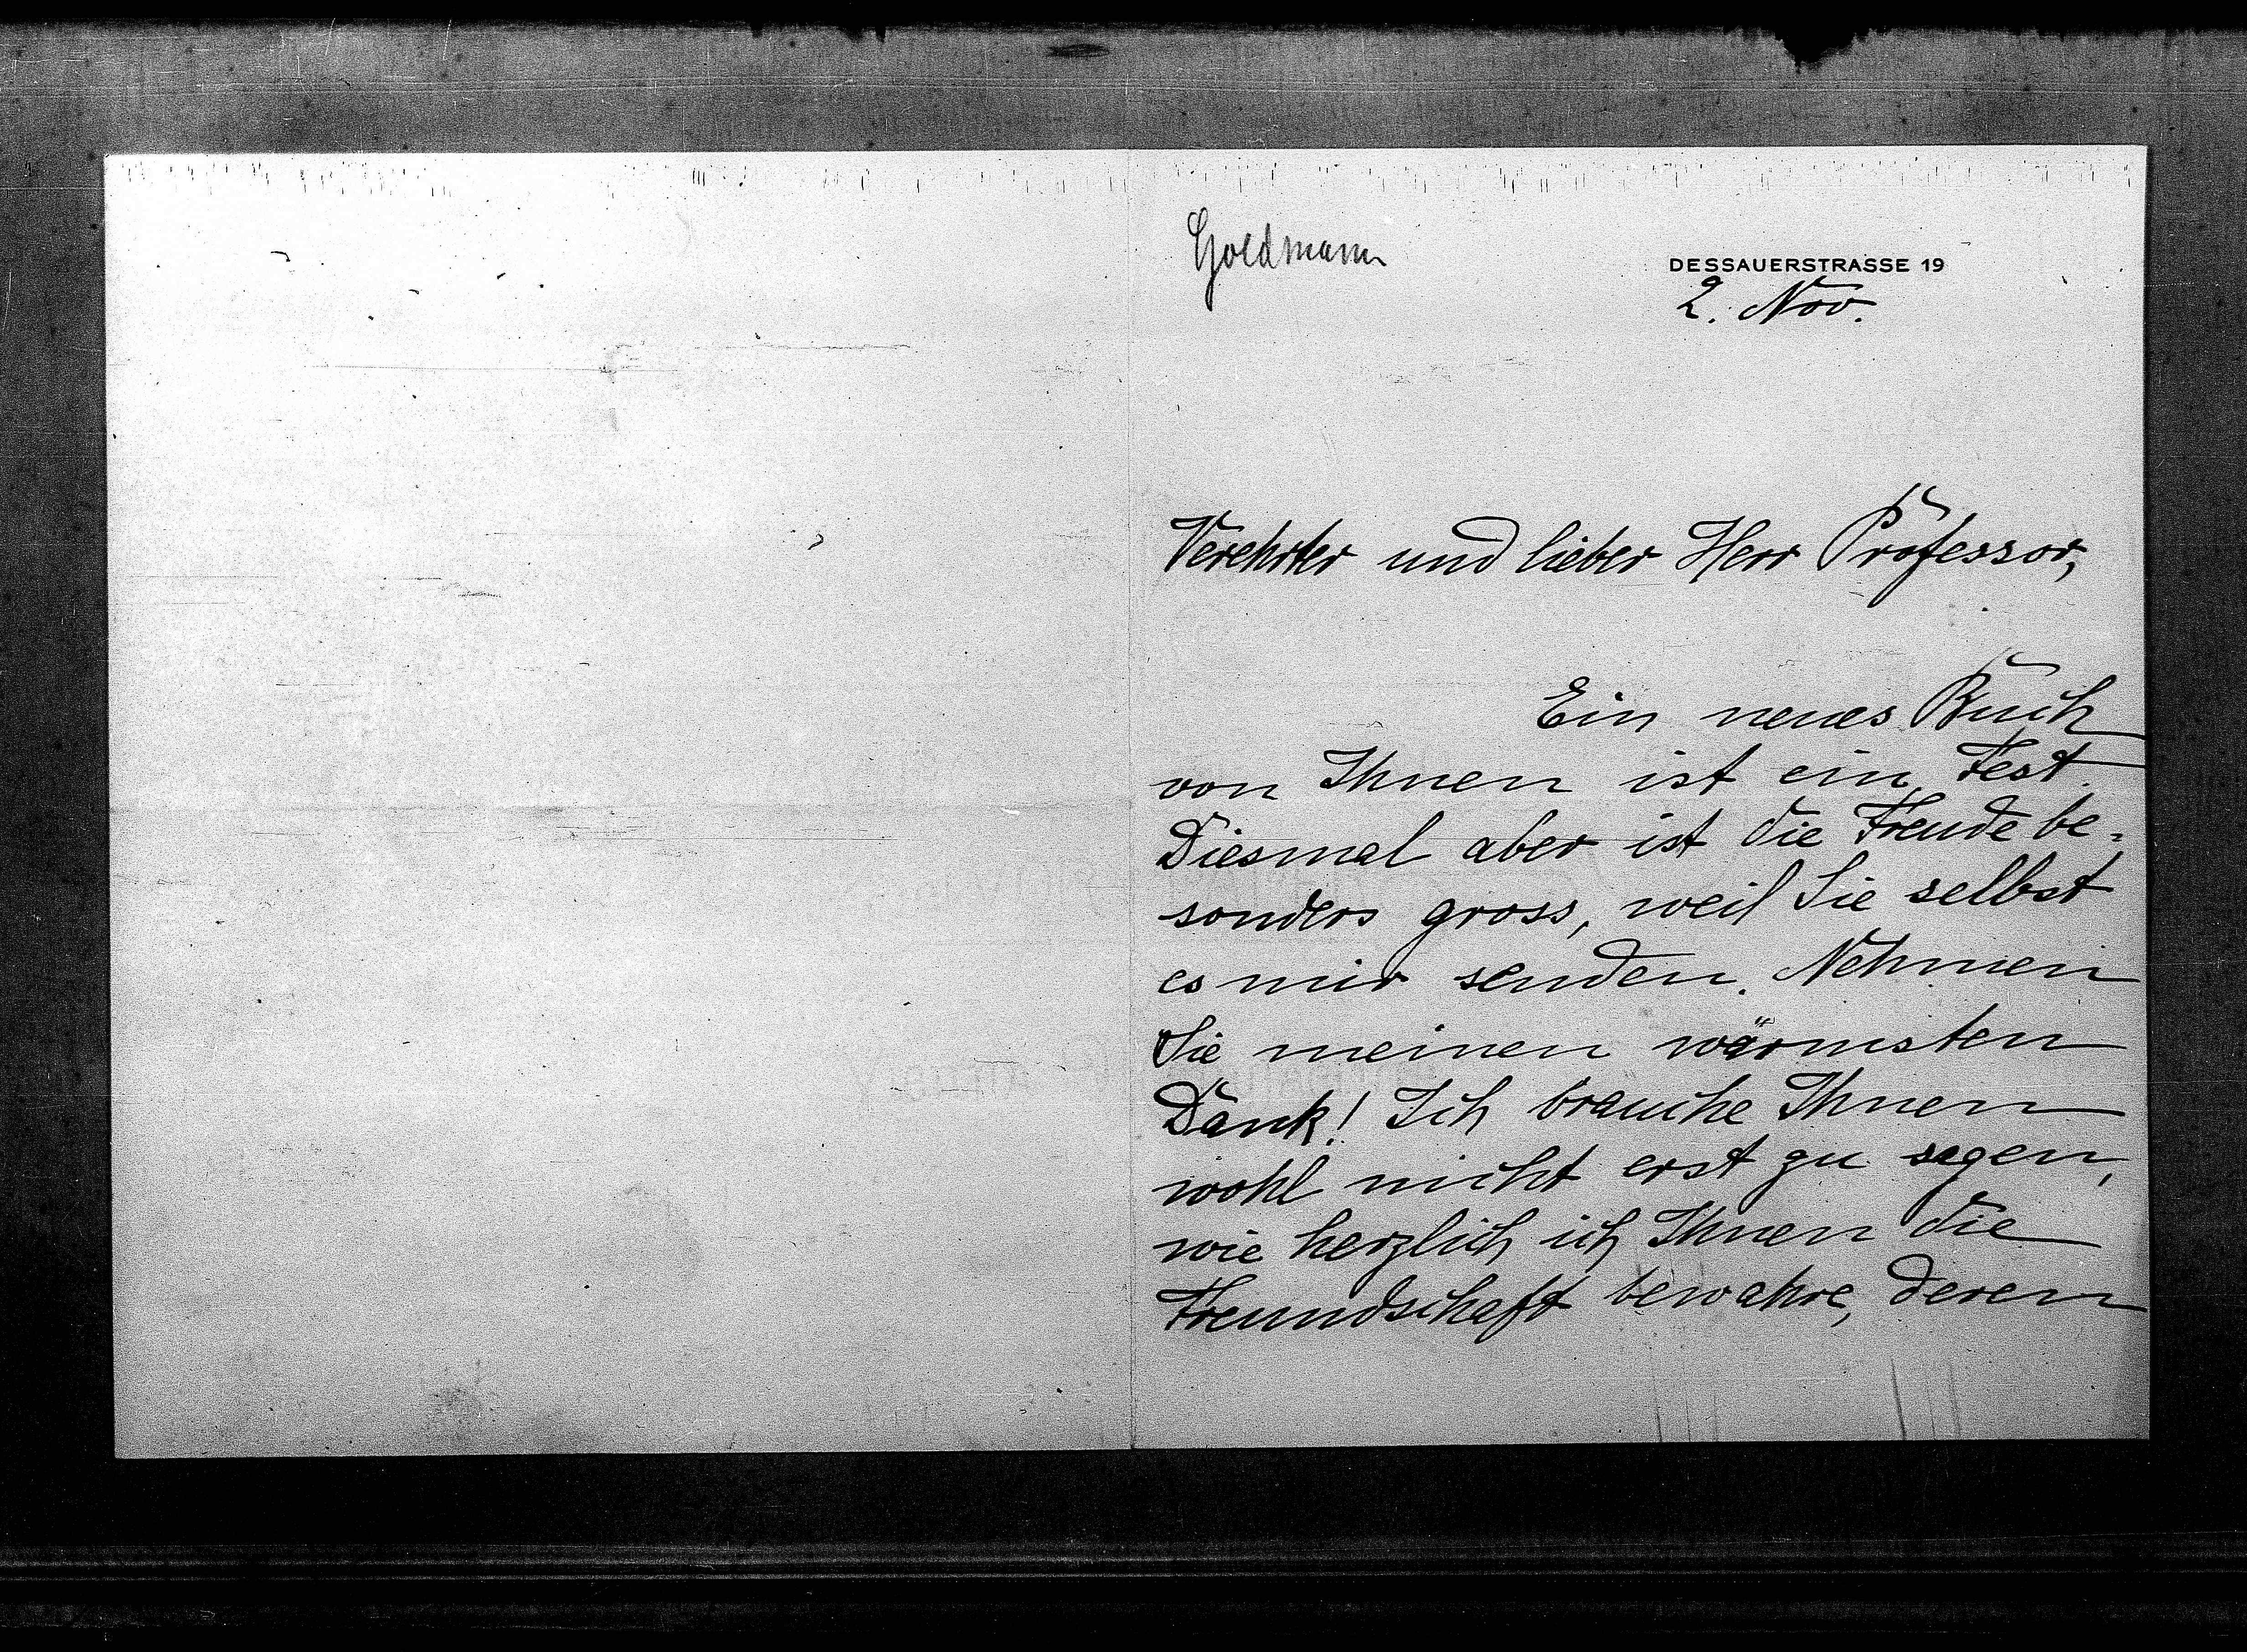 Goldmann
DESSAUERSTRASSE 19
2. Nov.
Verehrter und lieber Herr Professor,
Ein neues Buch
von Ihnen ist ein Fest.
Diesmal aber ist die Freude be-
sonders gross, weil Sie selbst
es mir senden. Nehmen
Sie meinen wärmsten
Dank! Ich brauche Ihnen
wohl nicht erst zu sagen,
wie herzlich ich Ihnen die
Freundschaft bewahre, deren